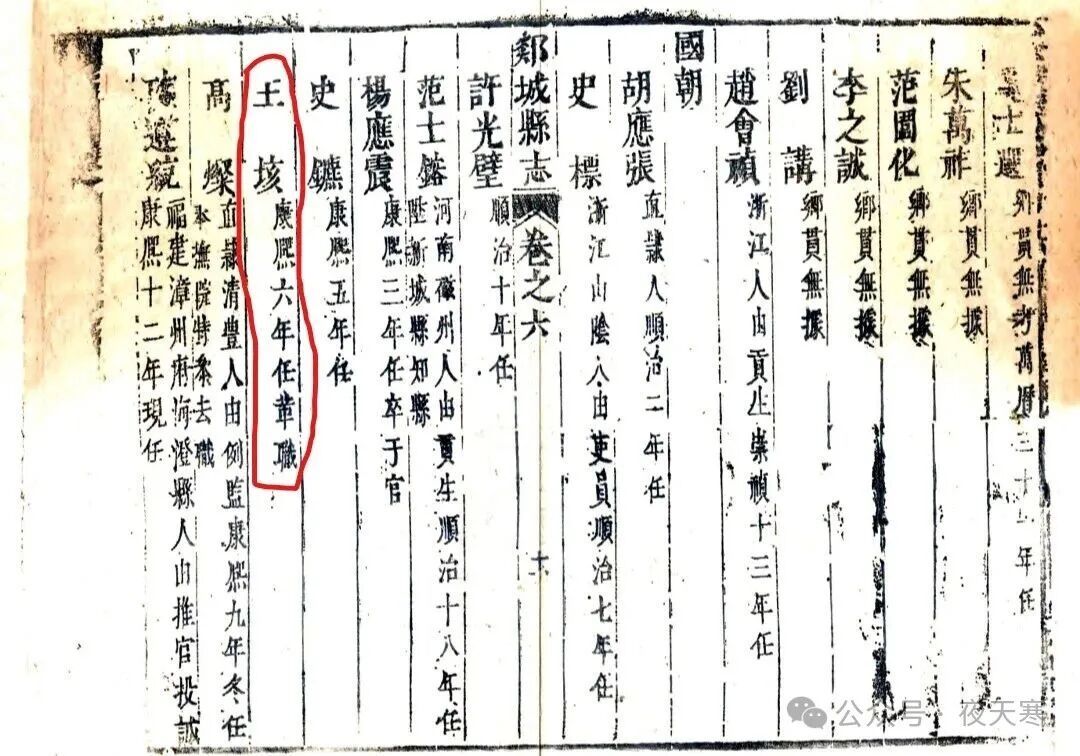 士選 鄉貫無考萬曆三十年任
朱萬祚 鄉貫無據
范圍化 鄉貫無據
李之誠 鄉貫無據
劉講 鄉貫無據
趙會禎 浙江人由貢生崇禎十三年任
國朝
胡應張 直隷人順治二年任
史標 浙江山陰人由吏員順治七年任
郯城縣志 卷之六
許光璧 順治十年任
范士鎔 河南徽州人由貢生順治十八年任
陞新城縣知縣
楊應震 康熙三年任卒于官
史鑣 康熙五年任
王垓 康熙六年任革職
高燦 直隷清豊人由例監康熙九年冬任
本撫院特叅去職
遵 福建漳州府海澄縣人由推官投誠
康熙十二年現任
公众号·夜天寒